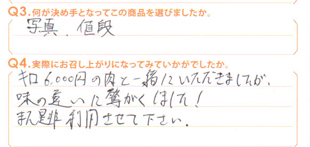 Q3.何が決め手となってこの商品を選びましたか。
写真、値段
Q4.実際にお召し上がりになってみていかがでしたか。
キロ6,000円の肉と一緒にいただきましたが、
味の違いに驚がくでした！
また是非利用させて下さい。